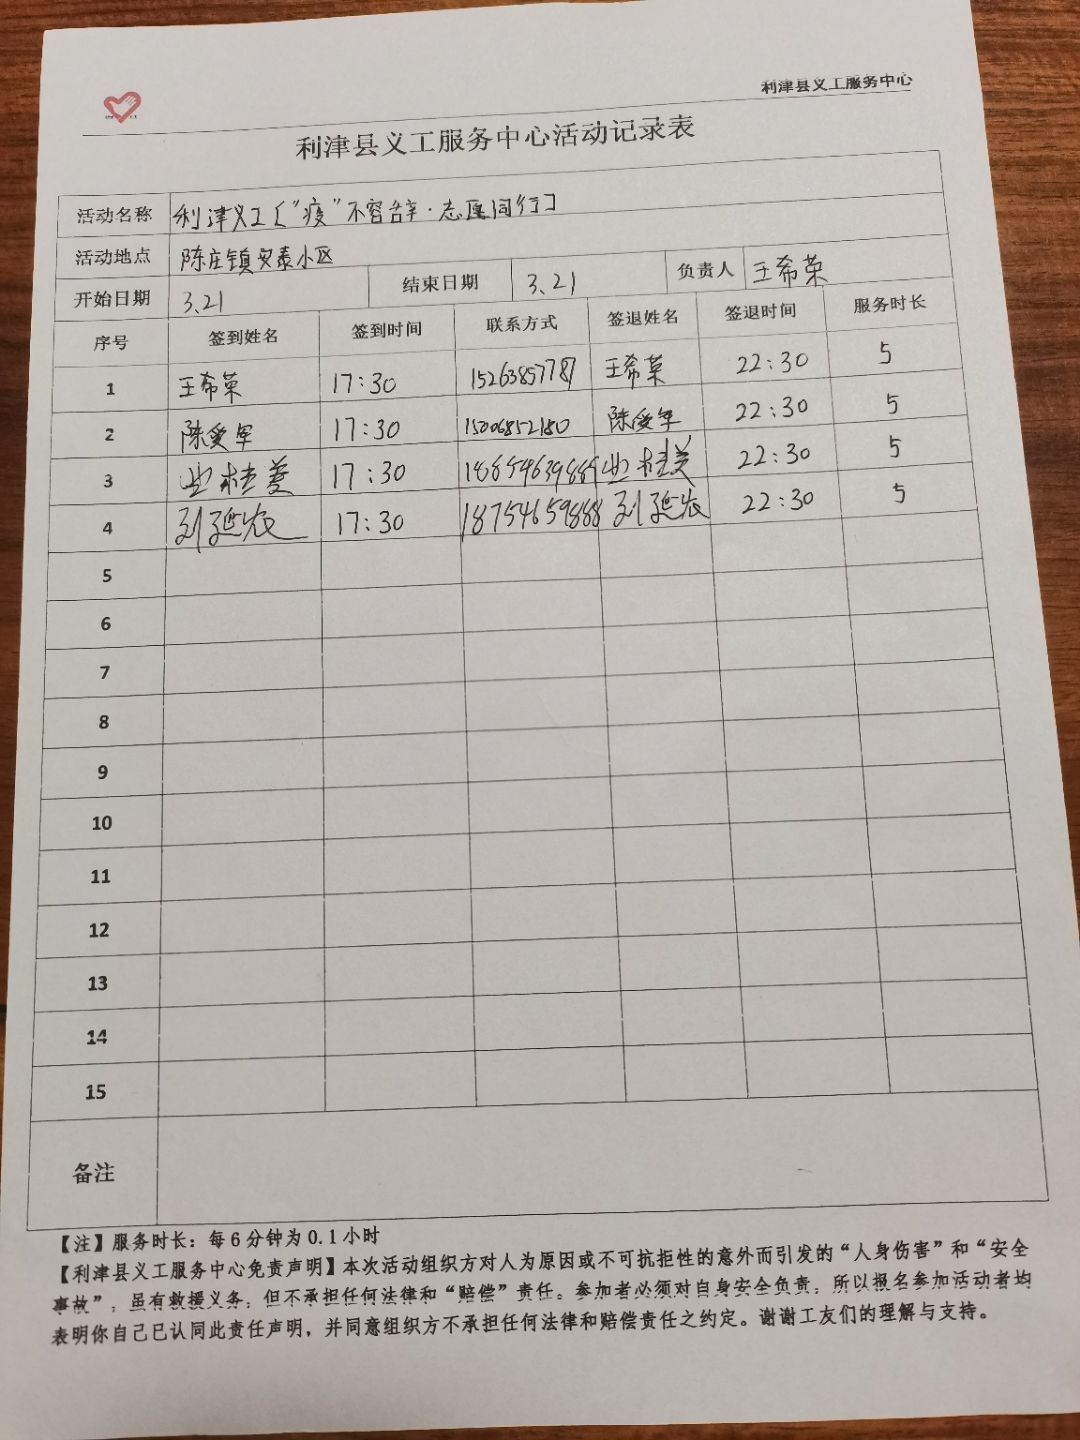 利津县义工服务中心
利津县义工服务中心活动记录表
活动名称 利津义工“疫”不容辞·志愿同行
活动地点 陈庄镇安泰小区
开始日期 3.21 结束日期 3.21 负责人 王希荣
序号 签到姓名 签到时间 联系方式 签退姓名 签退时间 服务时长
1 王希荣 17:30 15263857787 王希荣 22:30 5
2 陈爱军 17:30 15006852180 陈爱军 22:30 5
3 17:30 22:30 5
4 刘延农 17:30 18754659888 刘延农 22:30 5
5
6
7
8
9
10
11
12
13
14
15
备注
【注】服务时长：每6分钟为0.1小时
【利津县义工服务中心免责声明】本次活动组织方对人为原因或不可抗拒性的意外而引发的“人身伤害”和“安全
事故”，虽有救援义务，但不承担任何法律和“赔偿”责任。参加者必须对自身安全负责，所以报名参加活动者均
表明你自己已认同此责任声明，并同意组织方不承担任何法律和赔偿责任之约定。谢谢工友们的理解与支持。